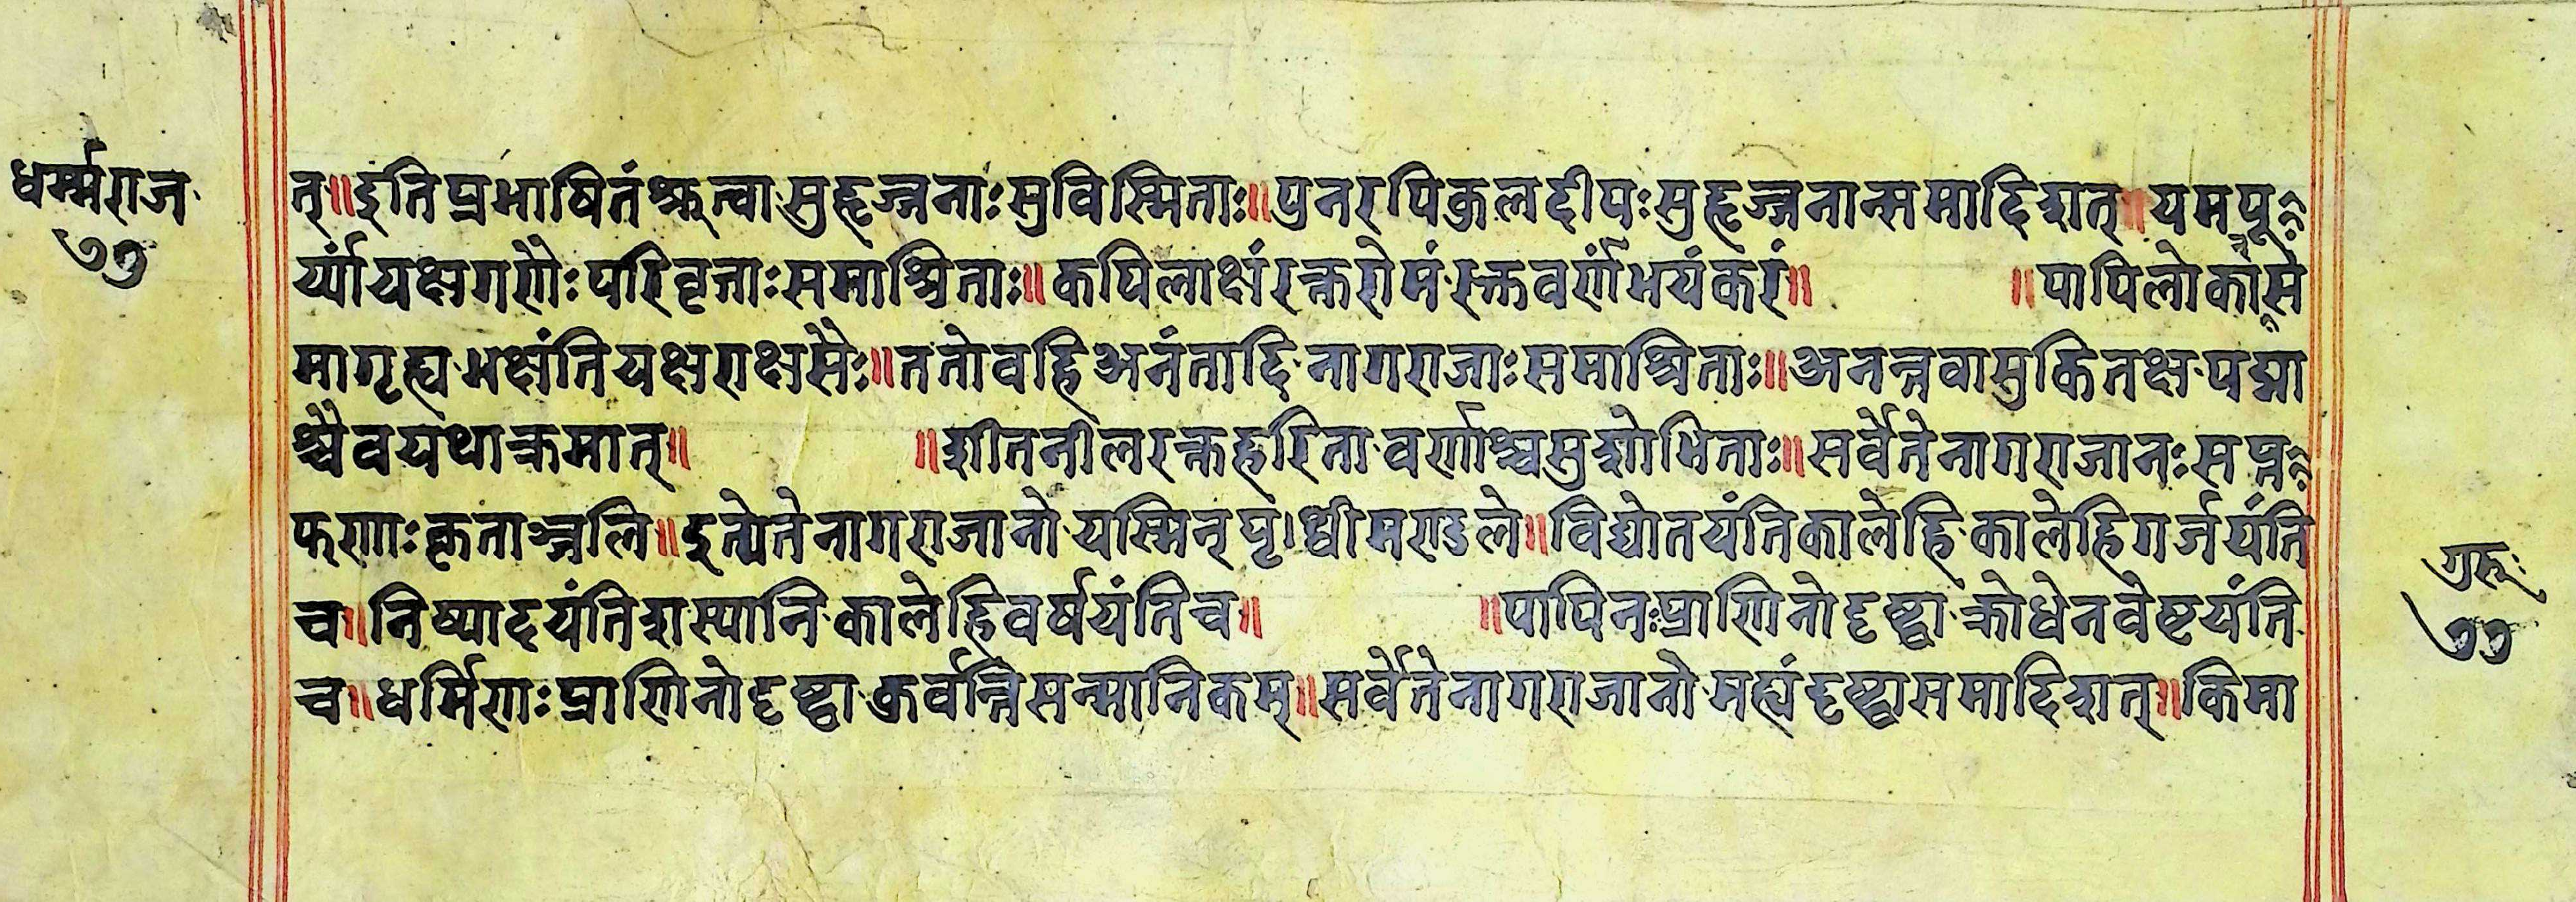 धर्म्मराज
७७
त्॥इतिप्रभाषितंश्रुत्वासुहृज्जनाःसुविस्मिताः॥पुनरपिकुलदीपःसुहृज्जनान्समादिशत्॥यमपू
र्य्यांयक्षगणैःपरिवृताःसमाश्रिताः॥कपिलाक्षंरक्तरोमंरक्तवर्णंभयंकरं॥ ॥पापिलोकांसे
मागृह्यभक्षंतियक्षराक्षसैः॥ततोवहिअनंतादिनागराजाःसमाश्रिताः॥अनन्तवासुकितक्षपद्मा
श्चैवयथाक्रमात्॥ ॥शीतनीलरक्तहरितावर्णाश्चसुशोभिताः॥सर्वेतेनागराजानःसप्त
फणाःकृताञ्जलि॥इत्येतेनागराजानोयस्मिन्पृथ्वीमण्डले॥विद्योतयंतिकालेहिकालेहिगर्जयंति
च॥निष्पादयंतिशस्यानिकालेहिवर्षयंतिच॥ ॥पापिनःप्राणिनोदृष्ट्वाक्रोधेनवेष्टयंति
च॥धर्मिणाःप्राणिनोदृष्ट्वाकुर्वन्तिसन्मानिकम्॥सर्वेतेनागराजानोमह्यंदृष्ट्वासमादिशत्॥किमा
गुरुः
७७